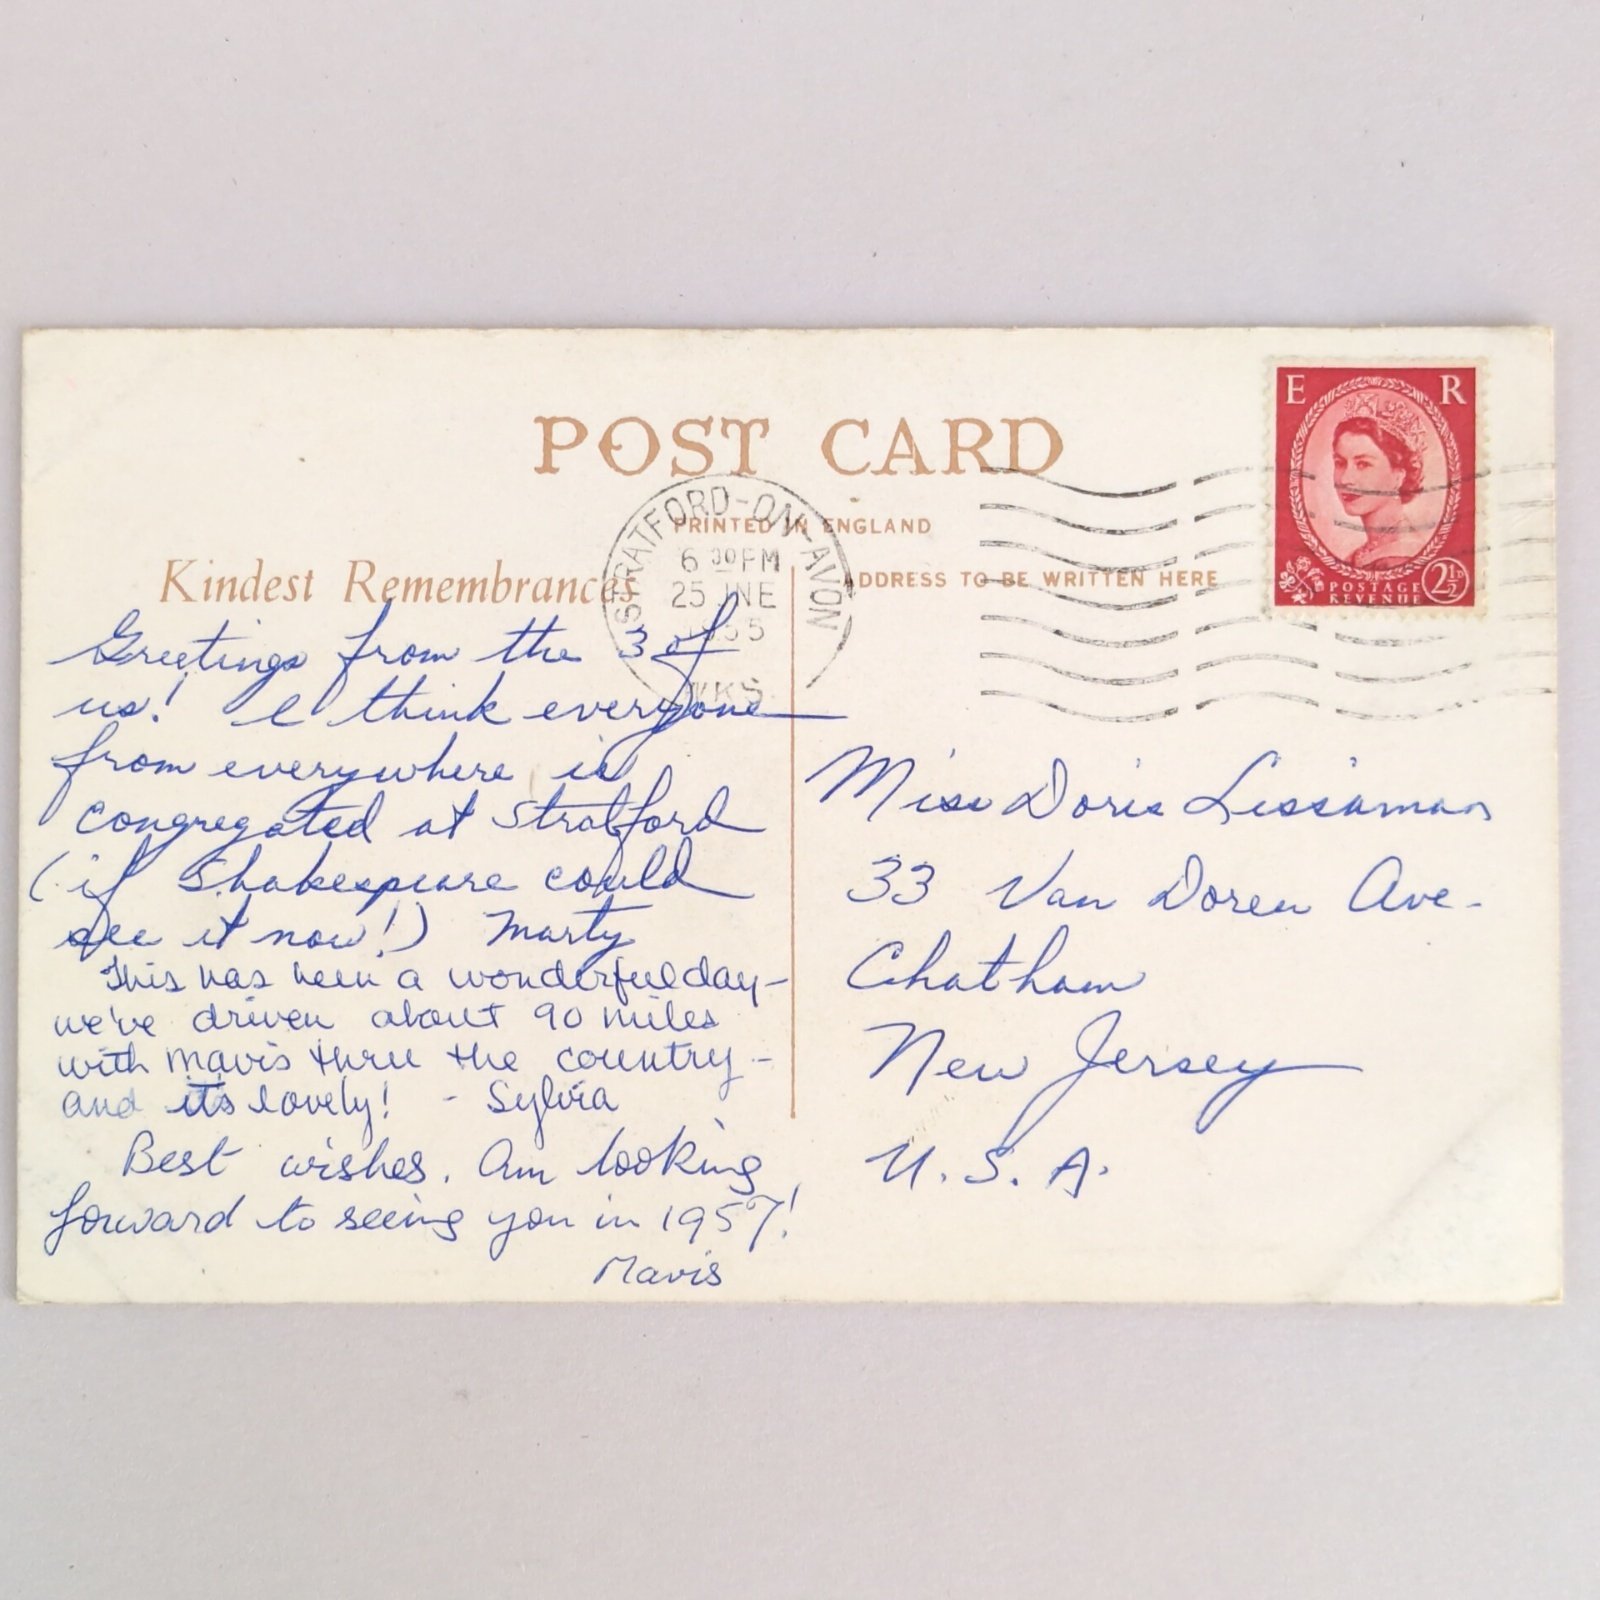 POST CARD
PRINTED IN ENGLAND
Kindest Remembrances
ADDRESS TO BE WRITTEN HERE
STRATFORD-ON-AVON
6 30 PM
25 JNE
1955
WKS
E R
POSTAGE
REVENUE
2½D
Greetings from the 3 of
us! I think everyone
from everywhere is
congregated at Stratford
(if Shakespeare could
see it now!) Marty
This has been a wonderful day -
we've driven about 90 miles
with Mavis thru the country -
and it's lovely! - Sylvia
Best wishes. Am looking
forward to seeing you in 1957!
Mavis
Miss Doris Lissaman
33 Van Doren Ave.
Chatham
New Jersey
U.S.A.